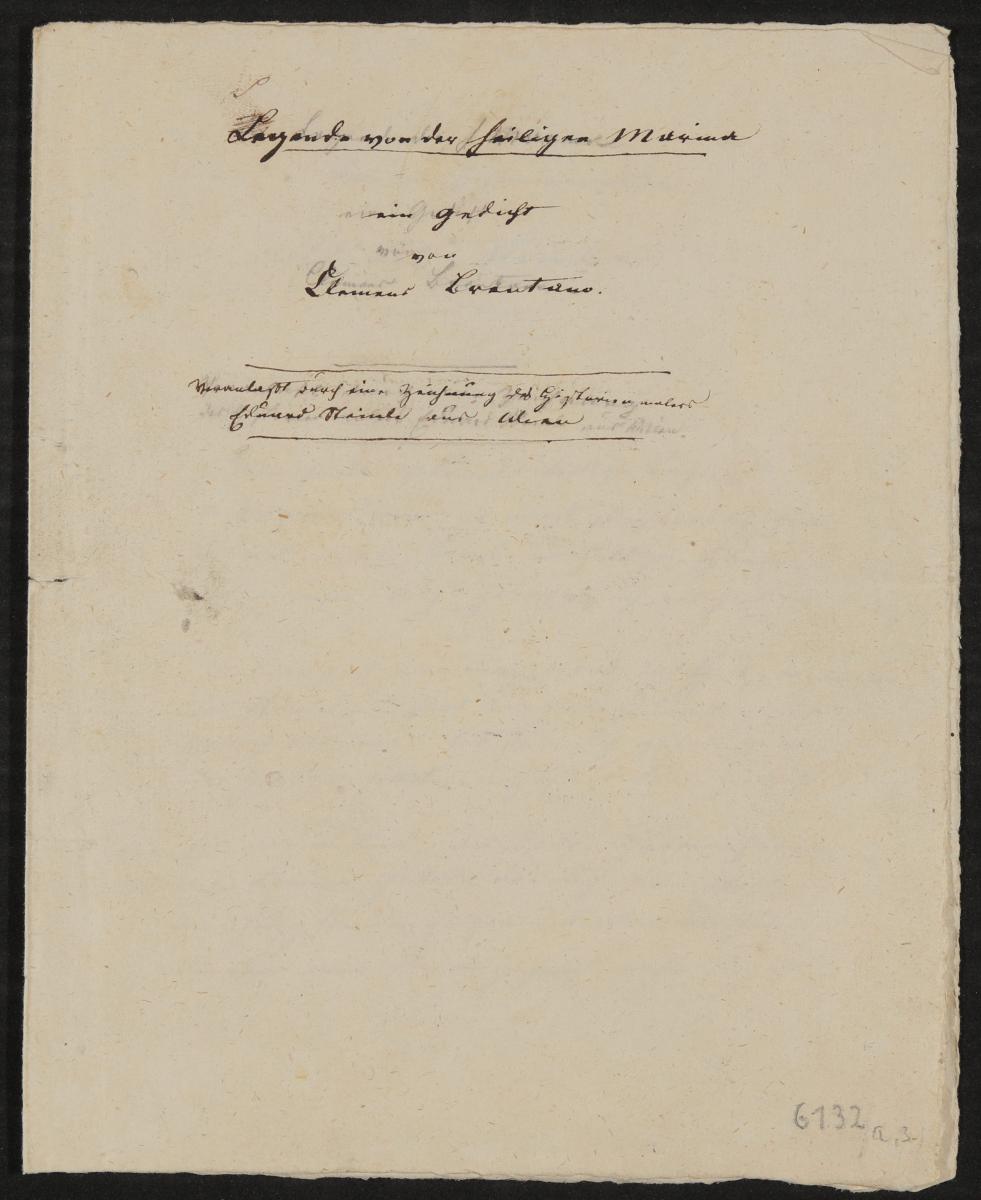 Legende von der heiligen Marina
ein Gedicht
von
Clemens Brentano.
Veranlaßt durch eine Zeichnung des Historienmalers
Eduard Steinle aus Wien
6132
a, 3.